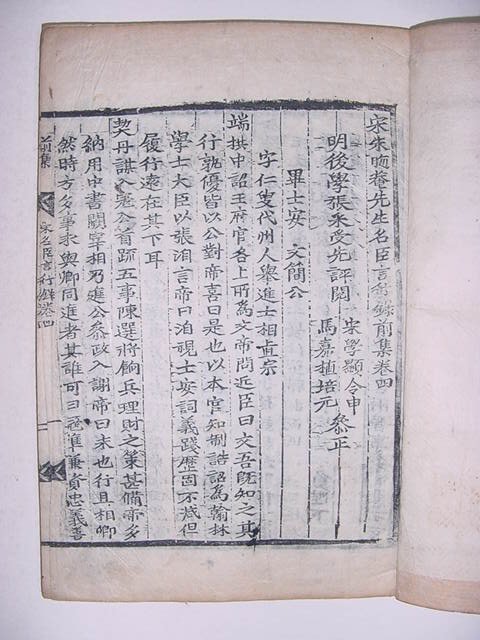 宋朱晦菴先生名臣言行錄前集卷四
明後學張采受先評閱
宋學顯令申
馬嘉植培元
參正
畢士安 文簡公
字仁叟代州人舉進士相眞宗
端拱中詔王府官各上所為文帝問近臣曰文吾既知之其
行孰優皆以公對帝喜曰是也以本官知制誥詔為翰林
學士大臣以張洎言帝曰洎視士安詞義踐歷固不減但
履行遠在其下耳
契丹謀入寇公首疏五事陳選將餉兵理財之策甚備帝多
納用中書闕宰相乃進公參政入謝帝曰未也行且相卿
然時方多事求與卿同進者其誰可曰寇準兼資忠義善
前集
宋名臣言行錄卷四
一